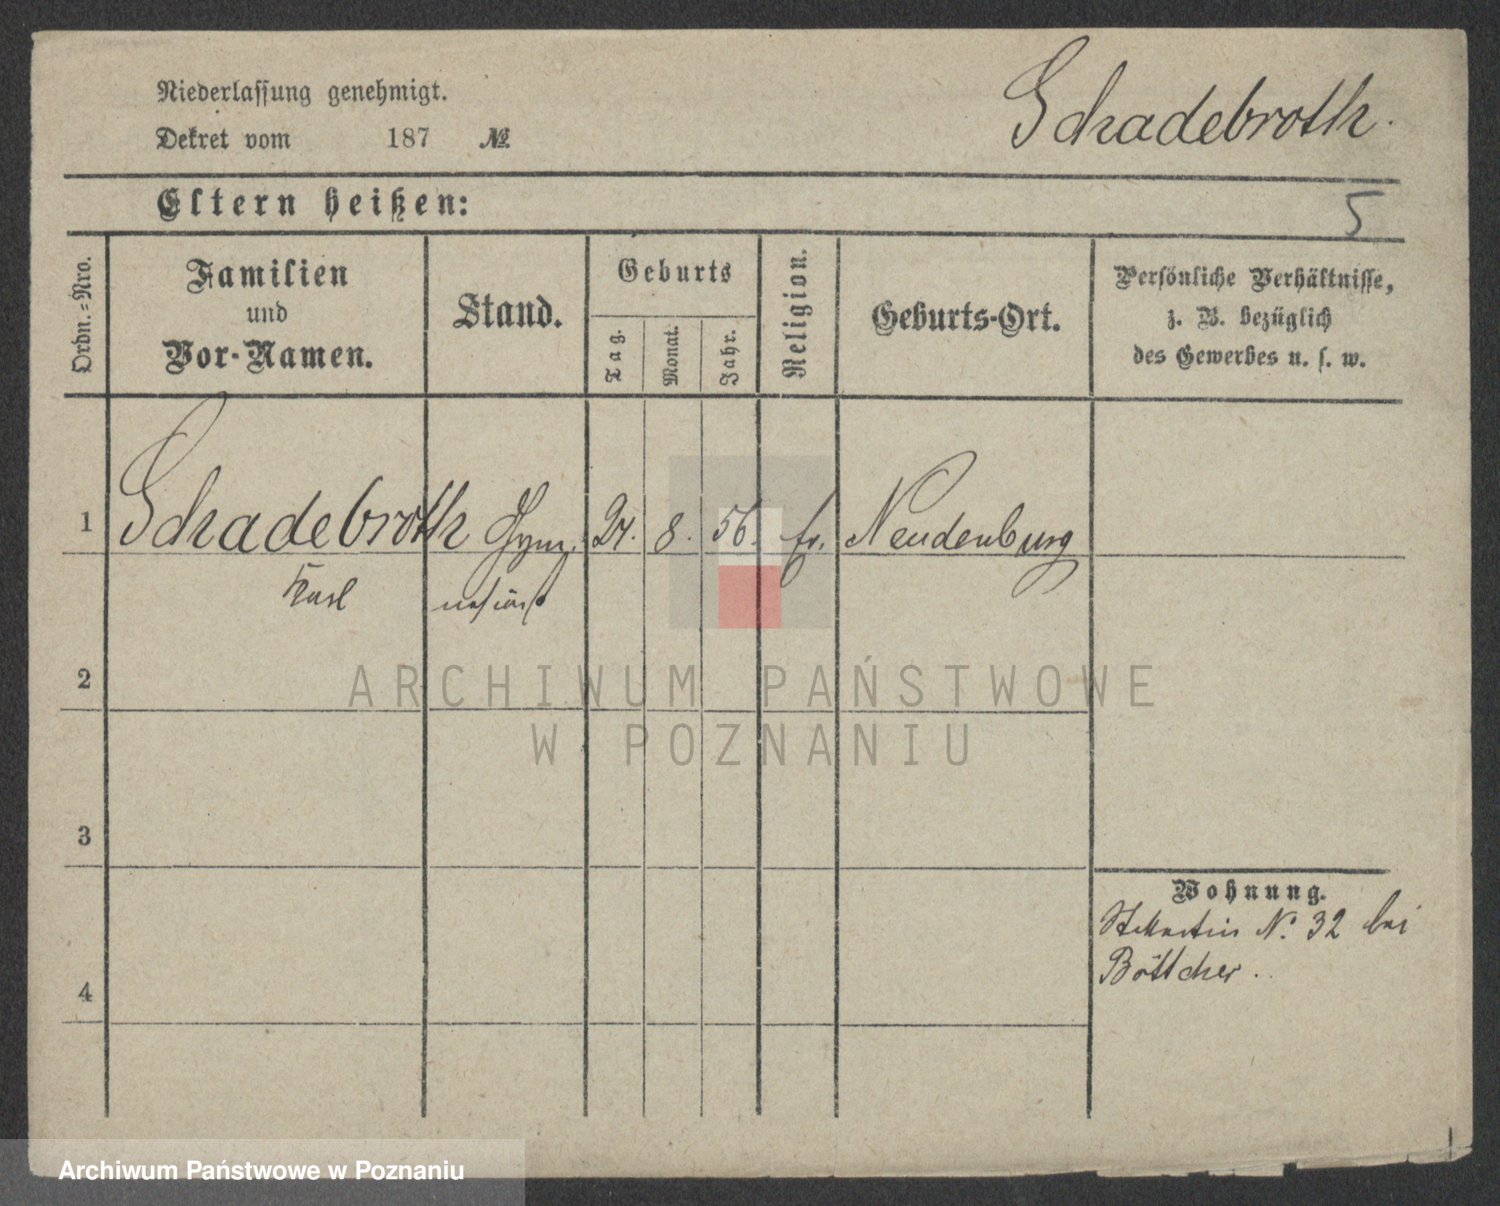 Niederlassung genehmigt.
Dekret vom 187 №
Schadebroth.
Eltern heißen:
5
Ordn.=Nro.
Familien
und
Vor-Namen.
Stand.
Geburts
Tag.
Monat.
Jahr.
Religion.
Geburts-Ort.
Persönliche Verhältnisse,
z. B. bezüglich
des Gewerbes u. s. w.
1 Schadebroth Gym, 24. 8. 56. ev. Neudenburg
Karl nasiast
2
ARCHIWUM PAŃSTWOWE
W POZNANIU
3
Wohnung.
St Martin No. 32 bei
Böttcher.
4
Archiwum Państwowe w Poznaniu